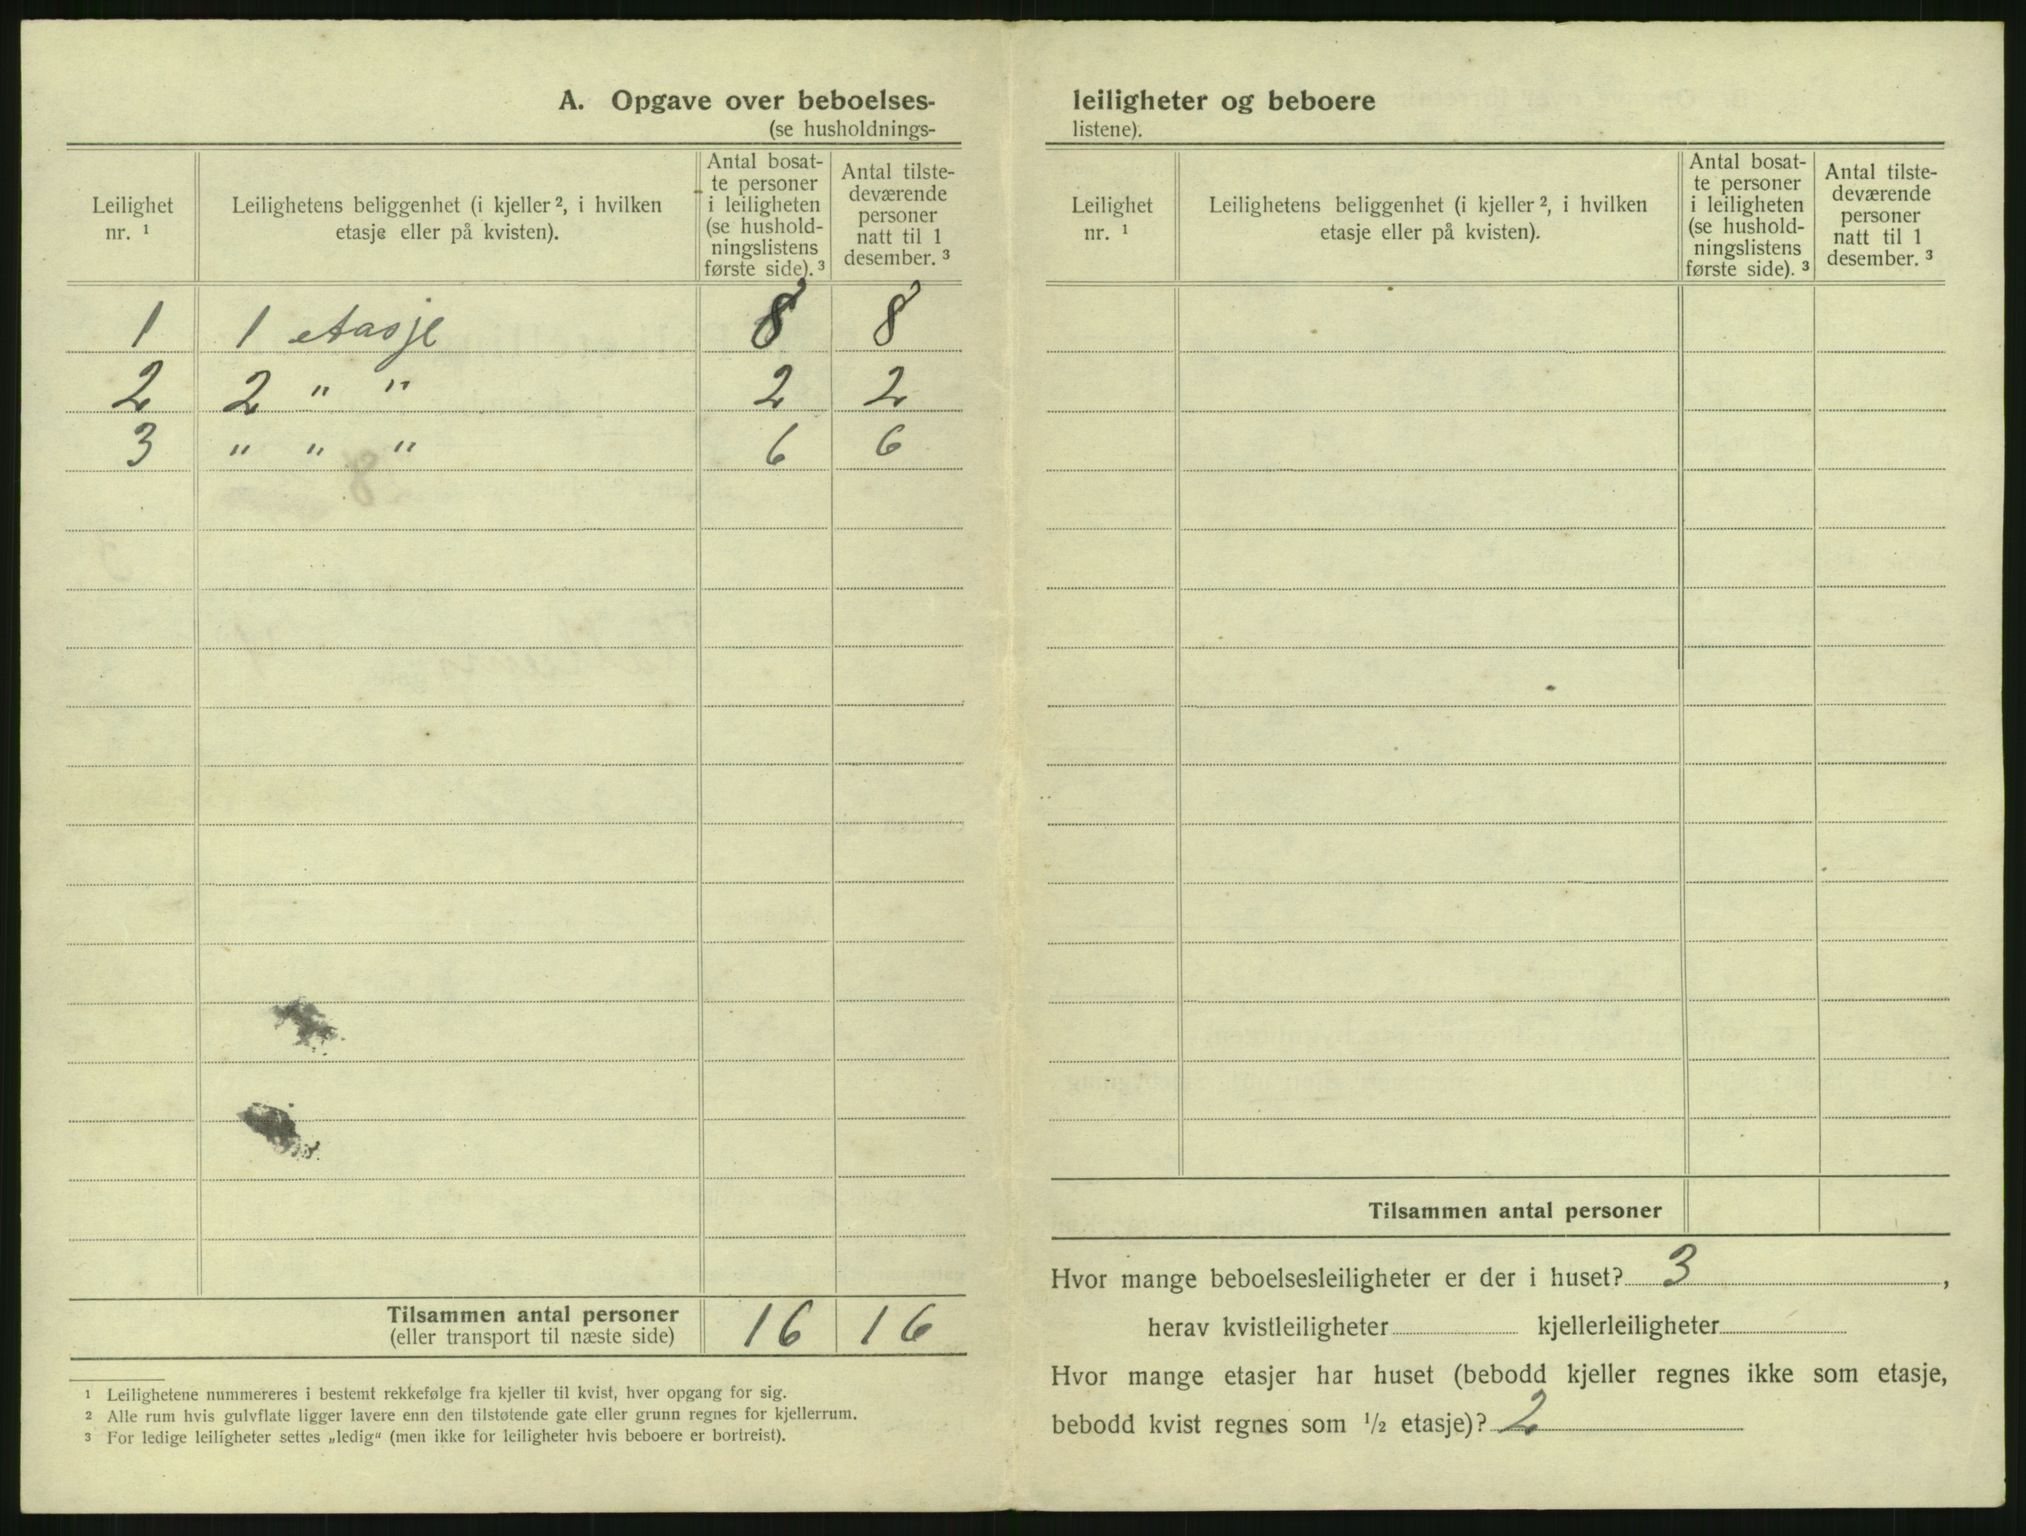 A. Opgave over beboelses-
(se husholdnings-
Leilighet nr. ¹
Leilighetens beliggenhet (i kjeller ², i hvilken etasje eller på kvisten).
Antal bosat-
te personer
i leiligheten
(se hushold-
ningslistens
første side). ³
Antal tilste-
deværende
personer
natt til 1
desember. ³
1 1 etasje 8 8
2 2 " " 2 2
3 " " " 6 6
Tilsammen antal personer
(eller transport til næste side) 16 16
¹ Leilighetene nummereres i bestemt rekkefølge fra kjeller til kvist, hver opgang for sig.
² Alle rum hvis gulvflate ligger lavere enn den tilstøtende gate eller grunn regnes for kjellerrum.
³ For ledige leiligheter settes „ledig" (men ikke for leiligheter hvis beboere er bortreist).
leiligheter og beboere
listene).
Leilighet nr. ¹
Leilighetens beliggenhet (i kjeller ², i hvilken etasje eller på kvisten).
Antal bosat-
te personer
i leiligheten
(se hushold-
ningslistens
første side). ³
Antal tilste-
deværende
personer
natt til 1
desember. ³
Tilsammen antal personer
Hvor mange beboelsesleiligheter er der i huset? 3 ,
herav kvistleiligheter kjellerleiligheter
Hvor mange etasjer har huset (bebodd kjeller regnes ikke som etasje,
bebodd kvist regnes som ½ etasje)? 2